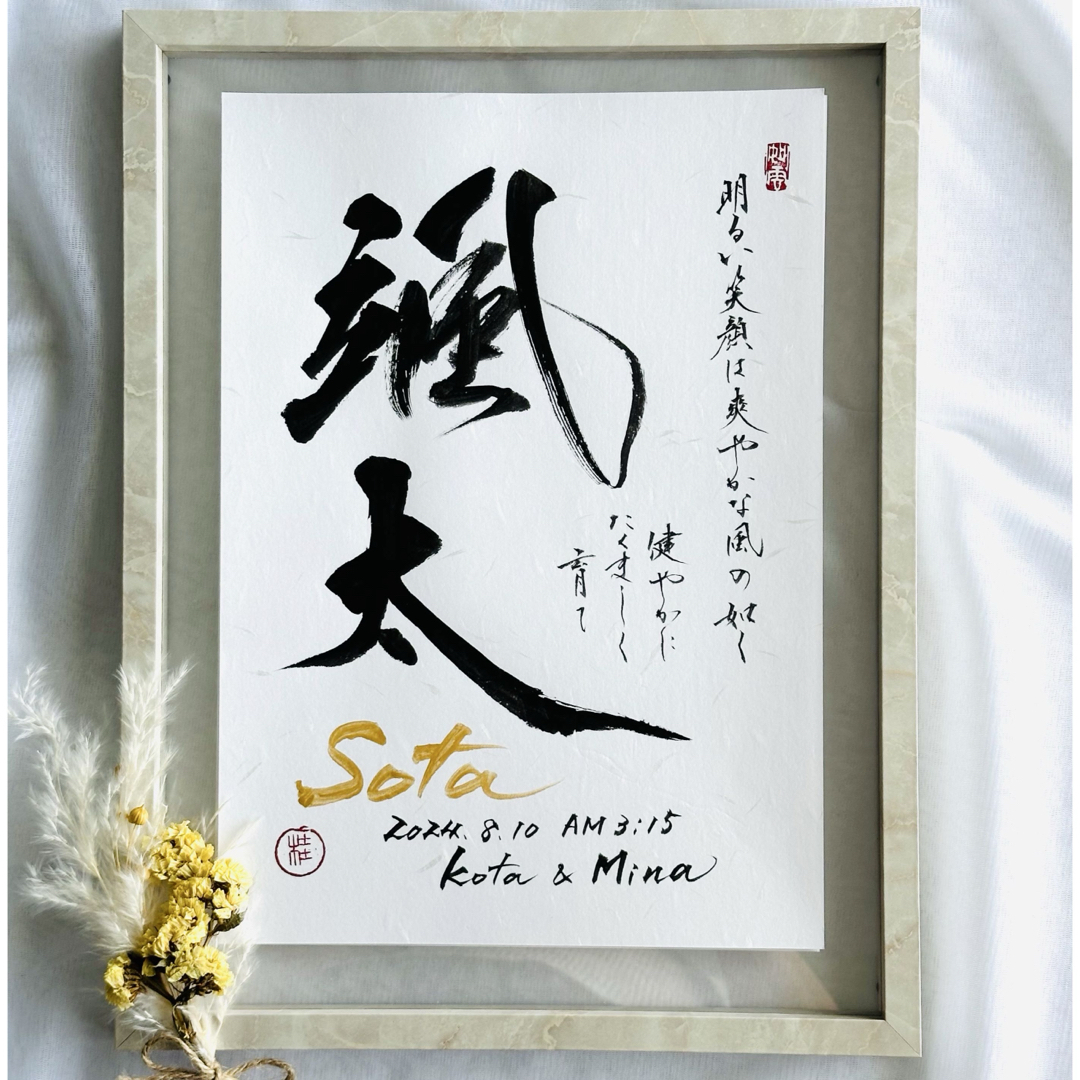 颯太
明るい笑顔は爽やかな風の如く
健やかに
たくましく
育て
Sota
2024.8.10 AM 3:15
Kota & Mina